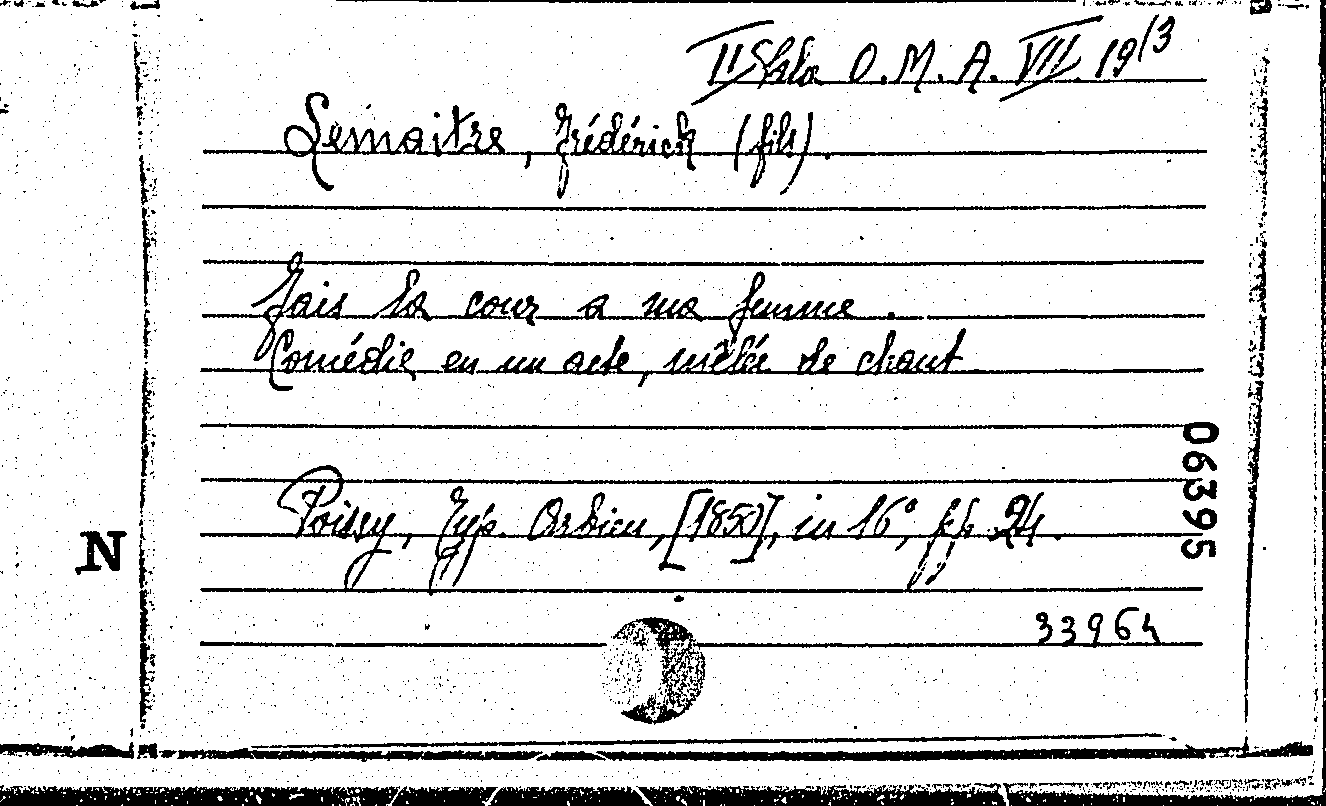 II Sala O.M.A. VII. 19/3
Lemaitre, Frédérick (fils).
Fais la cour a ma femme.
Comédie en un acte, mêlée de chant
Poissy, Typ. Arbieu, [1850], in 16°, pp. 24.
33964
06395
N